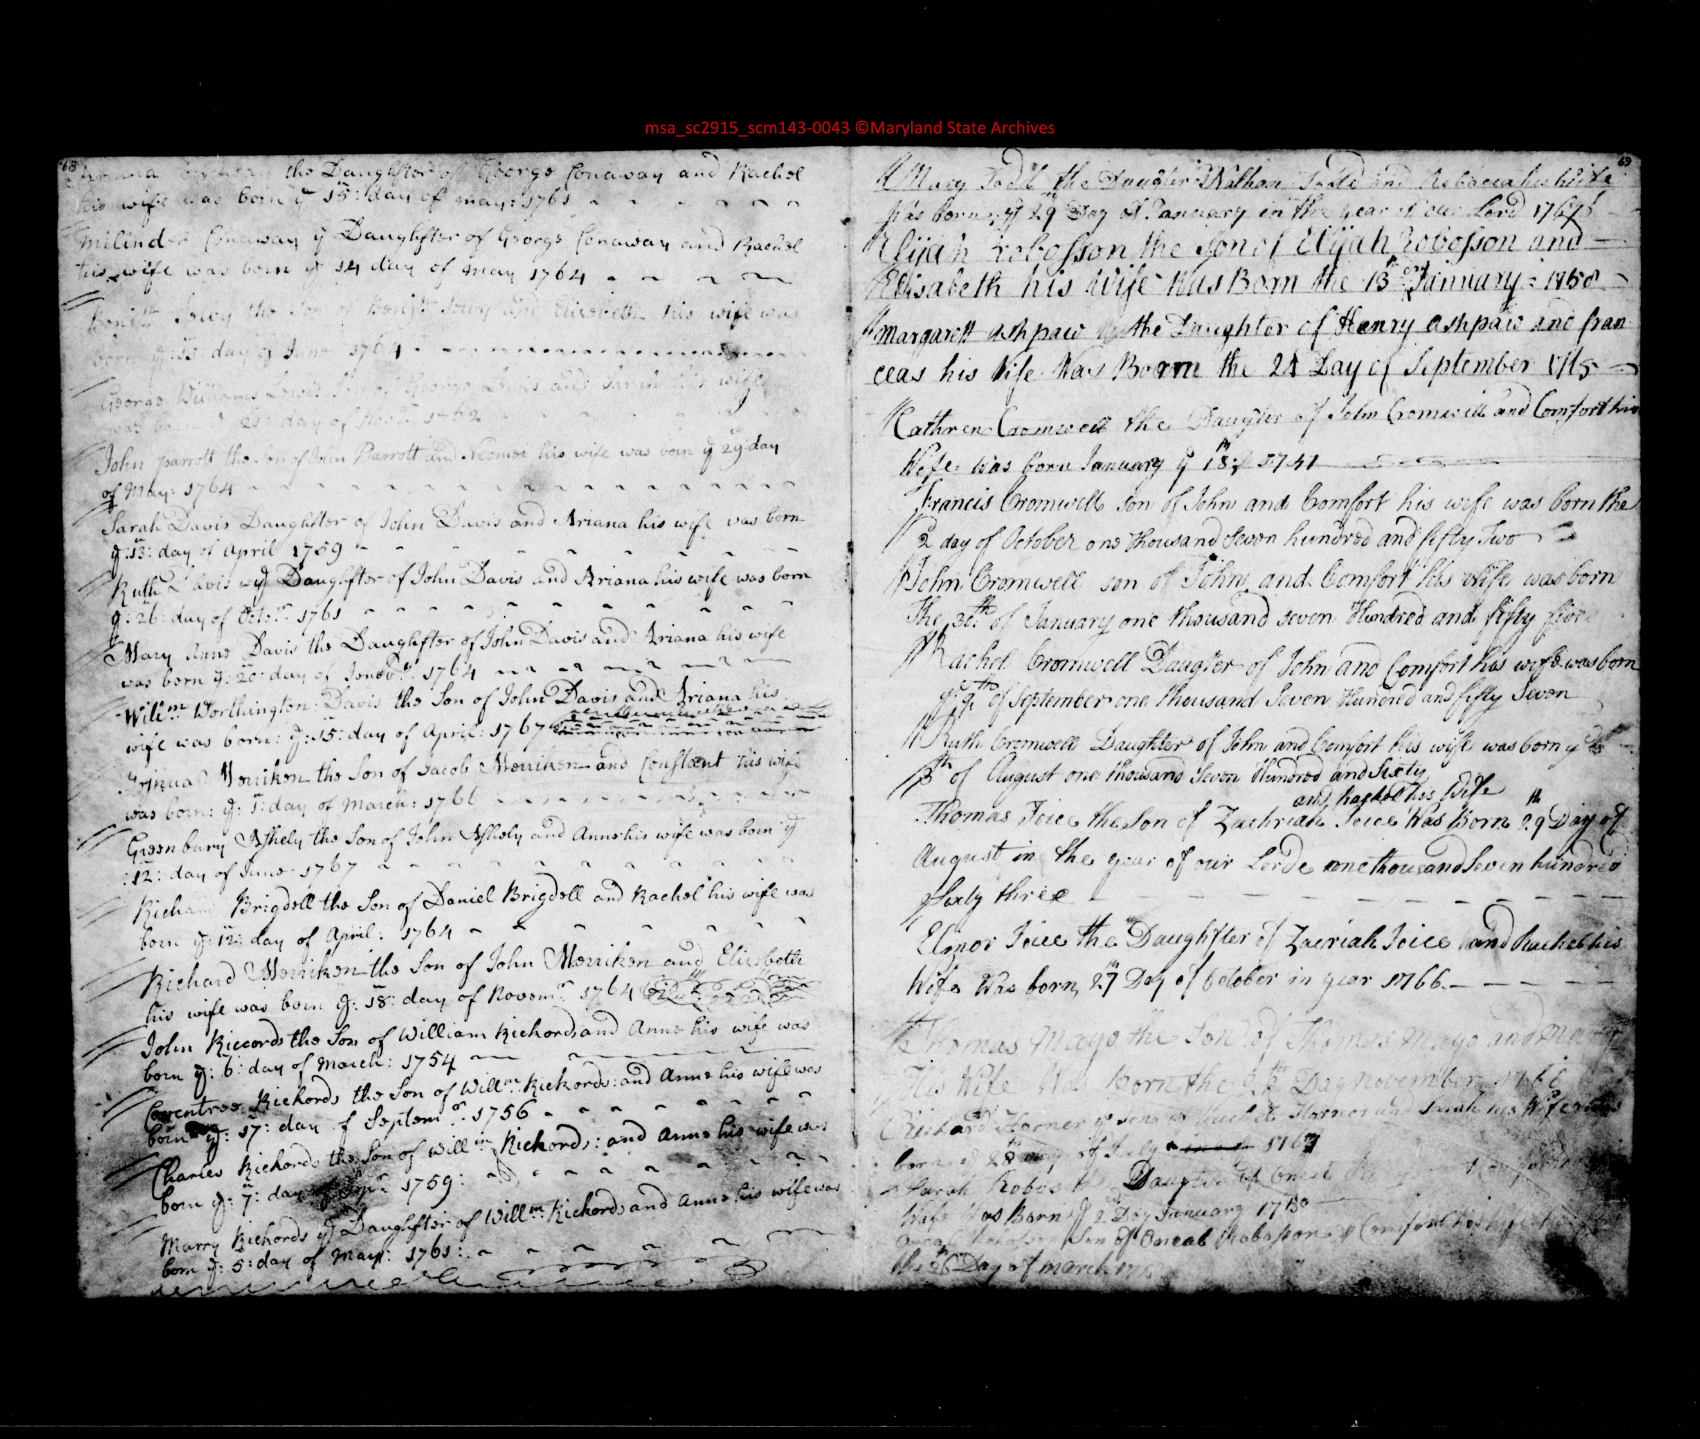 msa_sc2915_scm143-0043 ©Maryland State Archives
68
the Daughfter of George Conaway and Rachel
his wife was born ye 15: day of may: 1761
Conaway ye Daughfter of George Conaway and Rachel
his wife was born ye 14 day of may 1764
the Son of Benjn his wife was
day of June 1764
George Williams Lewis and his wife
day of 1762
John parrott the son of John Parrott and his wife was born ye 29 day
of May: 1764
Sarah Davis Daughfter of John Davis and Ariana his wife was born
ye: 13: day of April 1759
Ruth Davis ye Daughfter of John Davis and Ariana his wife was born
ye: 26: day of Octor 1761
Mary Anne Davis the Daughfter of John Davis and Ariana his wife
was born ye: 20: day of 1764
Willm Worthington: Davis the Son of John Davis and Ariana his
wife was born: ye: 15: day of April: 1767
Merriken the Son of Jacob Merriken and Constant his wife
was born: ye: day of March: 1766
Greenbury Ashely the Son of John Ashely and Anne his wife was born ye
:12: day of June 1767
Brigdell the Son of Daniel Brigdell and Rachel his wife was
born ye: 12: day of April: 1764
Richard Merriken the Son of John Merriken and Elizebeth
his wife was born ye: 18: day of Novemr 1764
John Riccords the Son of William Richords and Anne his wife was
born ye: 6: day of March: 1754
Richords the Son of Willm Richords: and Anne his wife was
born ye: 17: day of Septemr 1756
Charles Richords the Son of Willm Richords: and Anne his wife was
born ye: 7: day 1759:
Marry Richords ye Daughfter of Willm Richords and Anne his wife was
born ye: 5: day of May: 1761:
69
Mary the Daugter Nathan and Rebacca his Wife
Was born ye 29 Day of January in the year of our Lord 1767
Elijah Robosson the Son of Elijah Robosson and
Elisabeth his Wife Was Born the 13 January: 1758
Margarett ashpaw the Daughter of Henry ashpaw and fran
ceas his Wife Was Born the 24 Day of September
Cathren Cromwell the Daugter of John Cromwell and Comfort his
Wife: Was born January ye 18th 1741
Francis Cromwell son of John and Comfort his wife was born the
2 day of October one thousand Seven hundred and fifty Two
John Cromwell son of John and Comfort his Wife was born
The 3th of January one thousand seven Hundred and fifty five
Rachel Cromwell Daugter of John and Comfort his wife was born
ye 9th of September one thousand Seven Hundred and fifty Seven
Ruth Cromwell Daughter of John and Comfort his wife was born ye
3th of August one thousand Seven Hundred and Sixty
and Rachel his Wife
Thomas Joice the Son of Zachriah Joice Was Born 29th Day of
August in the year of our Lorde one thousand Seven hundred
Sixty three
Elonor Joice the Daughfter of Zacriah Joice and Rachel his
Wife Was born, 27th Day of October in year 1766
Thomas Mayo the Son of Thomas Mayo and
His Wife Was born the Day November 1766
Richard Horner ye son of Horner and Sarah his Wife was
born ye 28 of July 1767
Sarah Daugter of
Wife Was Born ye 2 Day January 1750
Son of Oneal Robosson ye Comfort his wife
the 26 Day of march